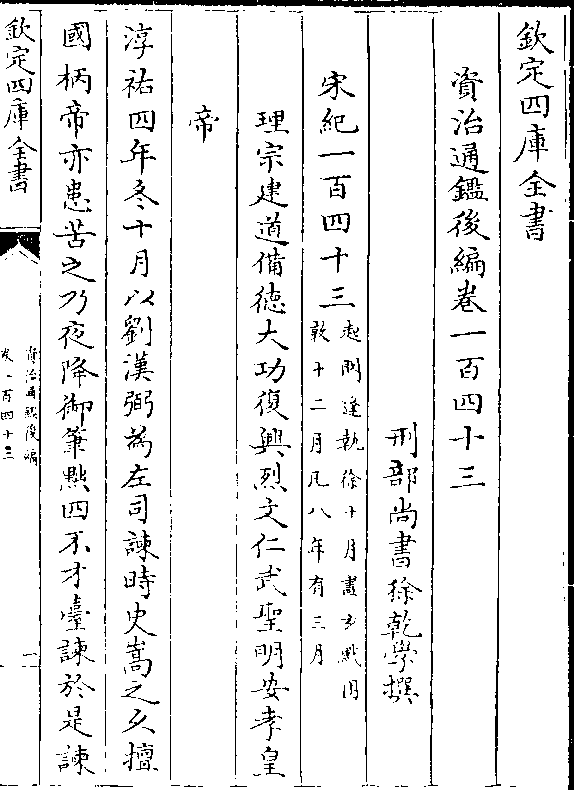 欽定四庫全書
資治通鑑後編卷一百四十三
刑部尚書徐乾學撰
宋紀一百四十三起閼逢執徐十月盡玄黓困
敦十二月凡八年有三月
理宗建道備徳大功復興烈文仁武聖明安孝皇
帝
淳祐四年冬十月以劉漢弼為左司諫時史嵩之久擅
國柄帝亦患苦之乃夜降御筆黜四不才臺諫於是諫
欽定四庫全書
資治通鑑後編
卷一百四十三
一